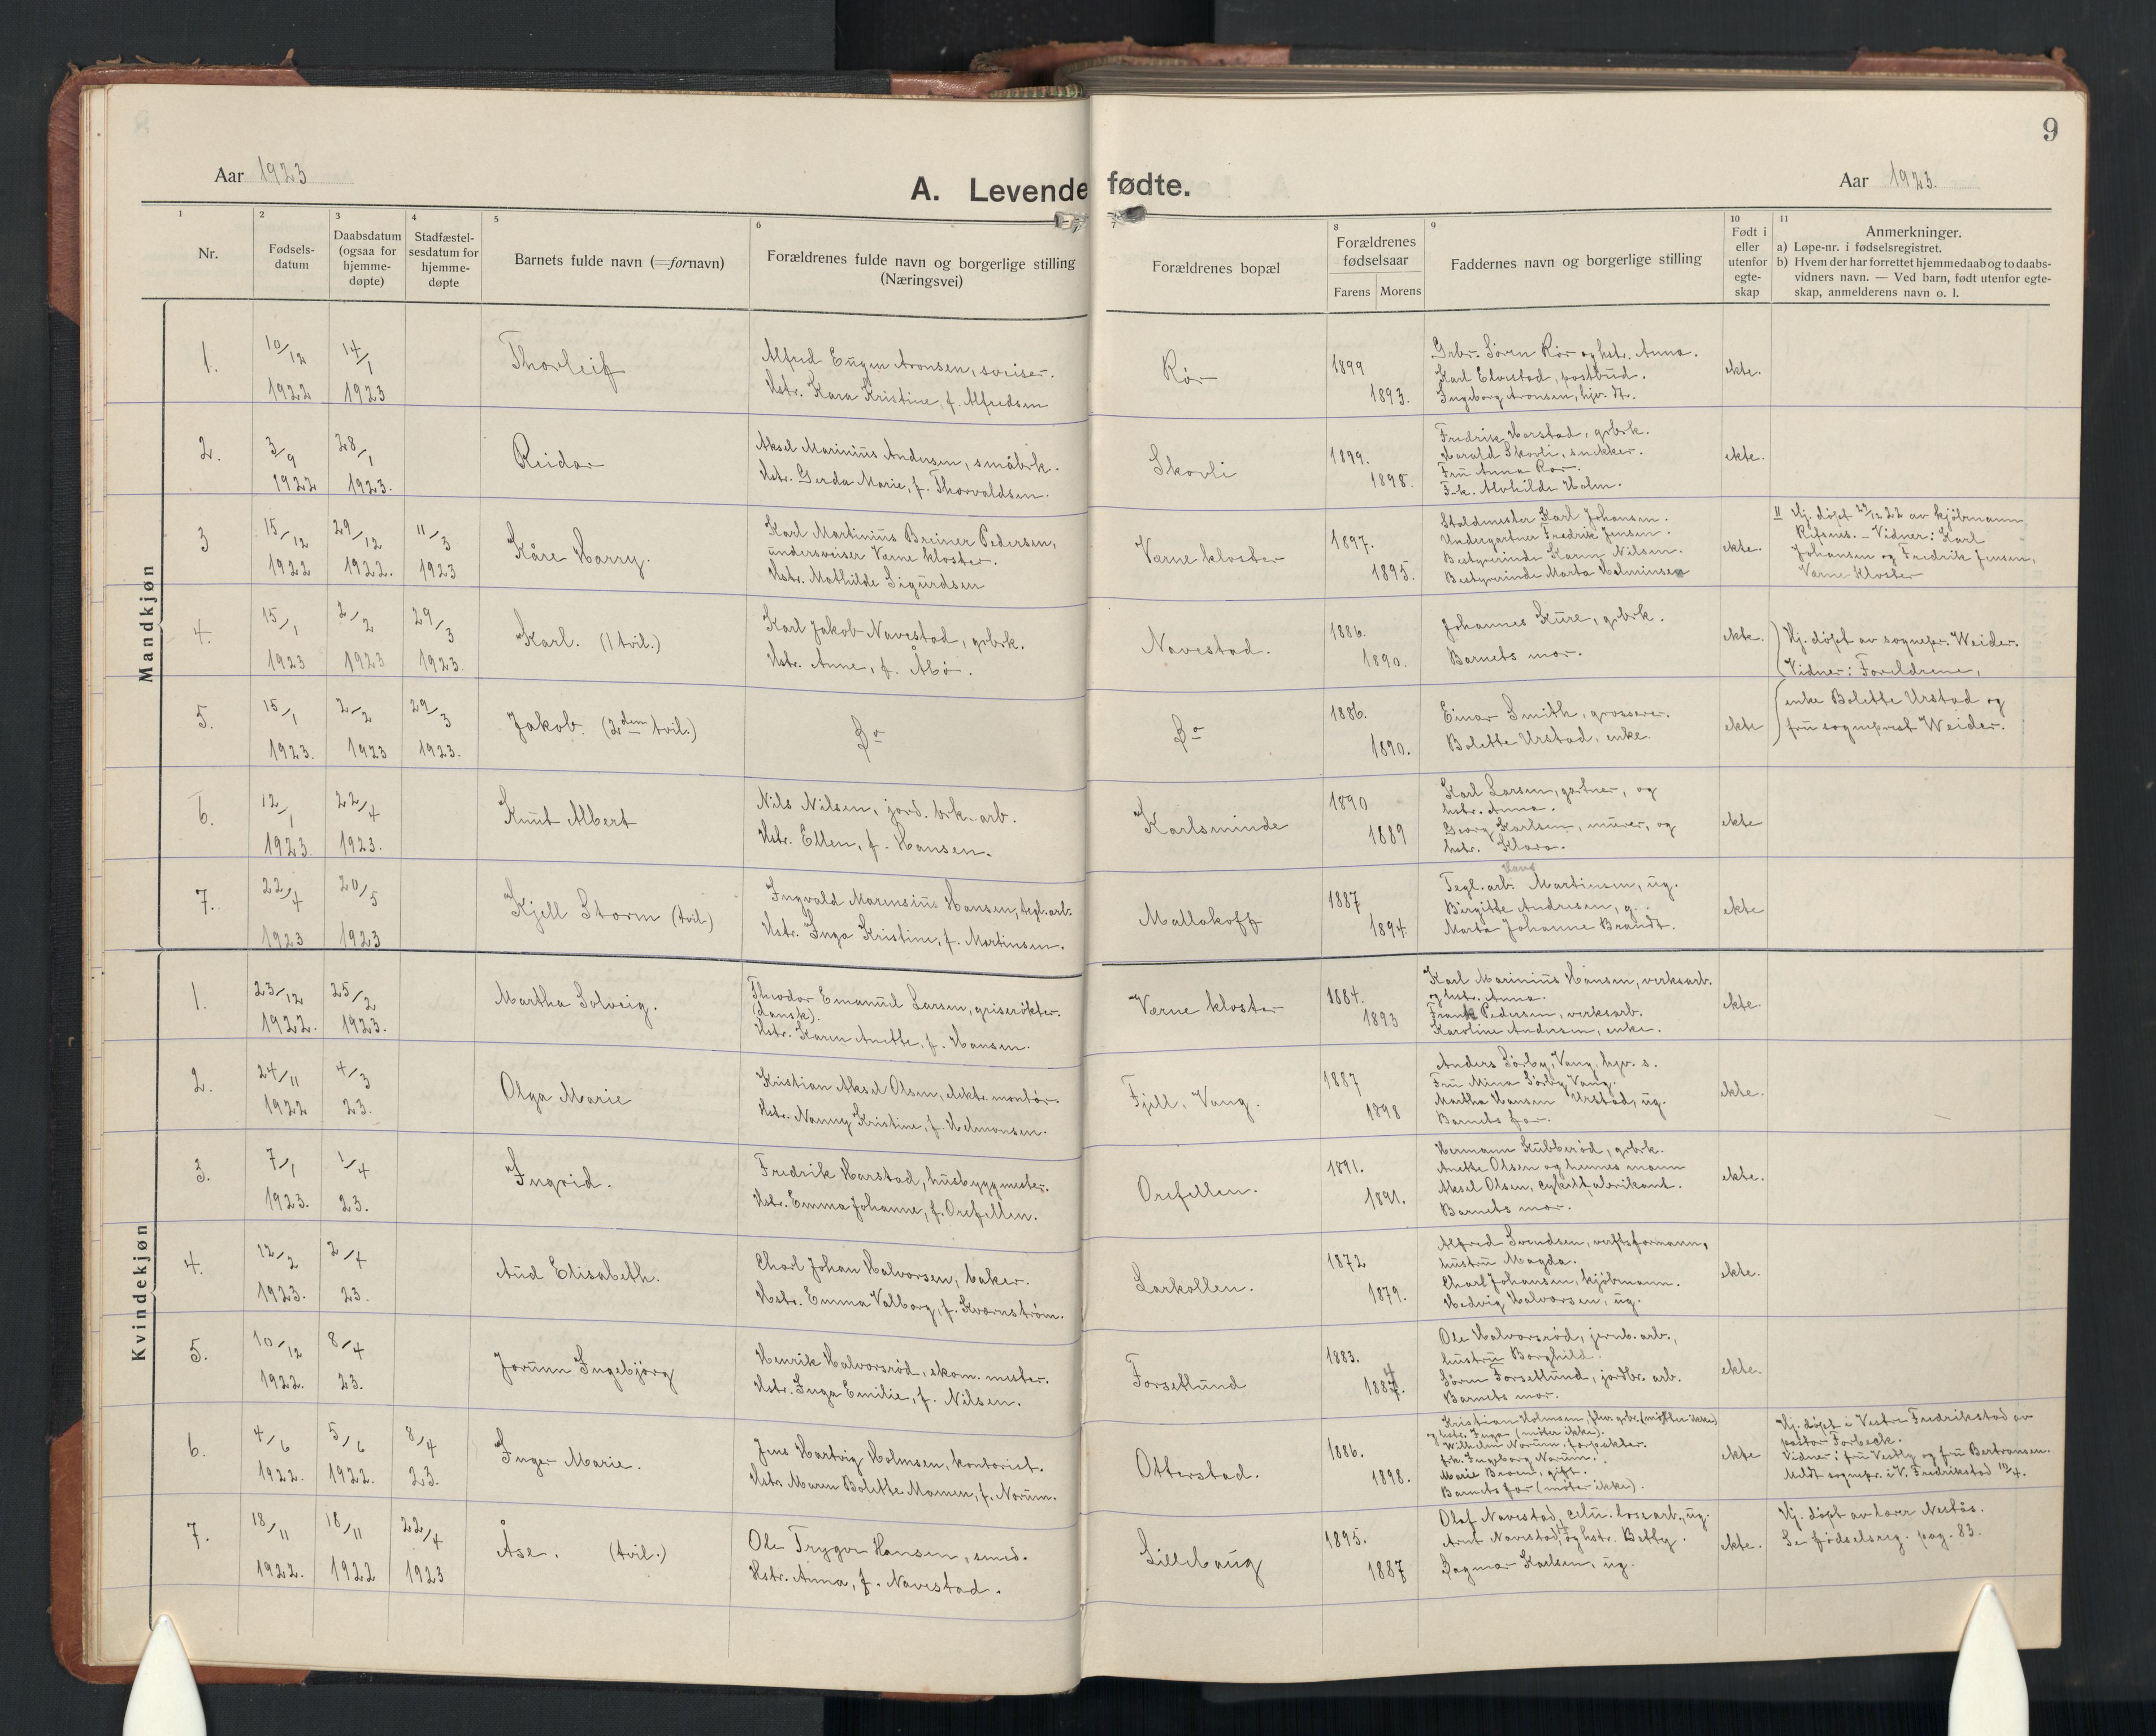 9
Aar 1923
A. Levende fødte.
Aar 1923.
1 2 3 4 5 6 7 7 8 9 10 11
Nr.
Fødsels-
datum
Daabsdatum
(ogsaa for
hjemme-
døpte)
Stadfæstel-
sesdatum for
hjemme-
døpte
Barnets fulde navn (=fornavn)
Forældrenes fulde navn og borgerlige stilling
(Næringsvei)
Forældrenes bopæl
Forældrenes
fødselsaar
Farens Morens
Faddernes navn og borgerlige stilling
Født i
eller
utenfor
egte-
skap
Anmerkninger.
a) Løpe-nr. i fødselsregistret.
b) Hvem der har forrettet hjemmedaab og to daabs-
vidners navn. — Ved barn, født utenfor egte-
skap, anmelderens navn o. l.
Mandkjøn
1.
10/12
1922
14/1
1923
Thorleif
Alfred Eugen Aronsen, sveiser.
Hstr. Kara Kristine, f. Alfredsen
Rør
1899
1893.
Grbr. Sören Rör og hstr. Anna.
Karl Elvestad, postbud.
Ingeborg Aronsen, hjv. dtr.
ekte.
2.
3/9
1922
28/1
1923.
Reidar
Aksel Marinius Andersen, småbrk.
Hstr. Gerda Marie, f. Thorvaldsen.
Skovli
1899.
1898.
Fredrik Harstad, grbrk.
Harald Skovli, snekker.
Fru Anna Rør.
Frk. Alvhilde Holm.
ekte.
3
15/12
1922
29/12
1922.
11/3
1923
Kåre Harry.
Karl Martinius Breiner Pedersen,
undersveiser Værne kloster.
Hstr. Mathilde Sigurdsen
Værne kloster
1897.
1895.
Staldmester Karl Johansen.
Undergartner Fredrik Jensen.
Bestyrerinde Karen Nilsen.
Bestyrerinde Marta Halminsen
ekte.
Hj. døpt 29/12 22 av kjöbmann
Refsnes. – Vidner: Karl
Johansen og Fredrik Jensen,
Værne Kloster
4.
15/1
1923
2/2
1923
29/3
1923.
Karl. (1 tvil.)
Karl Jakob Navestad, grbrk.
Hstr. Anne, f. Åbö.
Navestad.
1886.
1890.
Johannes Kure, grbrk.
Barnets mor.
ekte.
Hj. døpt av sognepr. Weider.
Vidner: Foreldrene,
5.
15/1
1923.
2/2
1923
29/3
1923.
Jakob. (2den tvil.)
Do
Do
1886.
1890.
Einar Smith, grosserer.
Bolette Urstad, enke.
ekte
enke Bolette Urstad og
fru sogneprest Weider.
6.
12/1
1923.
22/4
1923.
Knut Albert
Nils Nilsen, jord. brk. arb.
Hstr. Ellen, f. Hansen.
Karlsminde
1890
1889
Karl Larsen, gartner, og
hstr. Anna.
Georg Karlsen, murer, og
hstr. Klara.
ekte
7.
22/4
1923
20/5
1923
Kjell Storm (tvil.)
Ingvald Marensius Hansen, tegl.arb.
Hstr. Inga Kristine, f. Martinsen.
Mallakoff
1887
1894.
Hans
Tegl.arb. Martinsen, ug.
Birgitte Andresen, g.
Marta Johanne Brandt.
ekte
Kvindekjøn
1.
23/12
1922.
25/2
1923.
Martha Solveig.
Theodor Emanuel Larsen, griserökter.
(dansk).
Hstr. Karen Anette, f. Hansen.
Værne kloster
1884.
1893
Karl Marinius Hansen, verksarb.
og hstr. Anna.
Frank Pedersen, verksarb.
Karoline Andersen, enke.
ekte.
2.
24/11
1922
4/3
23.
Olga Marie
Kristian Aksel Olsen, elektr. montör.
Hstr. Nanny Kristine, f. Helmonsen.
Fjell, Vang.
1887
1898
Anders Sörby, Vang, hjv. s.
Fru Mina Sörby Vang.
Martha Hansen Urstad, ug.
Barnets far.
ekte.
3.
7/1
1923.
1/4
23.
Ingrid.
Fredrik Harstad, husbyggmester.
Hstr. Emma Johanne, f. Orefellen.
Orefellen.
1891.
1891.
Hermann Kubberöd, grbrk.
Anette Olsen og hennes mann
Aksel Olsen, cykelfabrikant.
Barnets mor.
ekte.
4.
12/2
1923.
2/4
23.
Aud Elisabeth.
Charl Johan Halvorsen, baker.
Hstr. Emma Valborg, f. Kvarnström.
Larkollen.
1872
1879.
Alfred Svendsen, verftsformann,
hustru Magda.
Charl Johansen, kjöbmann.
Hedvig Halvorsen, ug.
ekte.
5.
10/12
1922.
8/4
23.
Jorunn Ingebjörg
Henrik Halvorsröd, skom. mester.
Hstr. Inga Emilie, f. Nilsen.
Forsetlund
1883.
1884.
Ole Halvorsröd, jernb. arb.,
hustru Borghild.
Sörn Forsetlund, jordbr. arb.
Barnets mor.
ekte.
6.
4/6
1922.
5/6
1922.
8/4
23.
Inger Marie.
Jens Hartvig Holmsen, kontorist.
Hstr. Maren Bolette Mamen, f. Norum.
Otterstad.
1886.
1898.
Kristian Holmsen, (möter ikke)
og hstr. Inga (möter ikke).
Wilhelm Norum, forpakter.
frk. Ingeborg Norum.
Marie Braend, gift.
Barnets far (möter ikke).
ekte
Hj. döpt i Vestre Fredrikstad av
pastor Forbeck.
Vidner: fru Vestby og fru Bertransen.
Meldt sognepr. i V. Fredrikstad 10/4.
7.
18/11
1922.
18/11
1922
22/4
1923
Åse. (tvil.)
Ole Trygve Hansen, smed.
Hstr. Anna, f. Navestad.
Lillehaug
1895.
1887
Olaf Navestad, celu. losearb., ug.
Arnt Navestad, og hstr. Betty.
Dagmar Karlsen, ug.
ekte.
Hj. döpt av lærer Nestås.
Se fødselsreg. pag. 83.